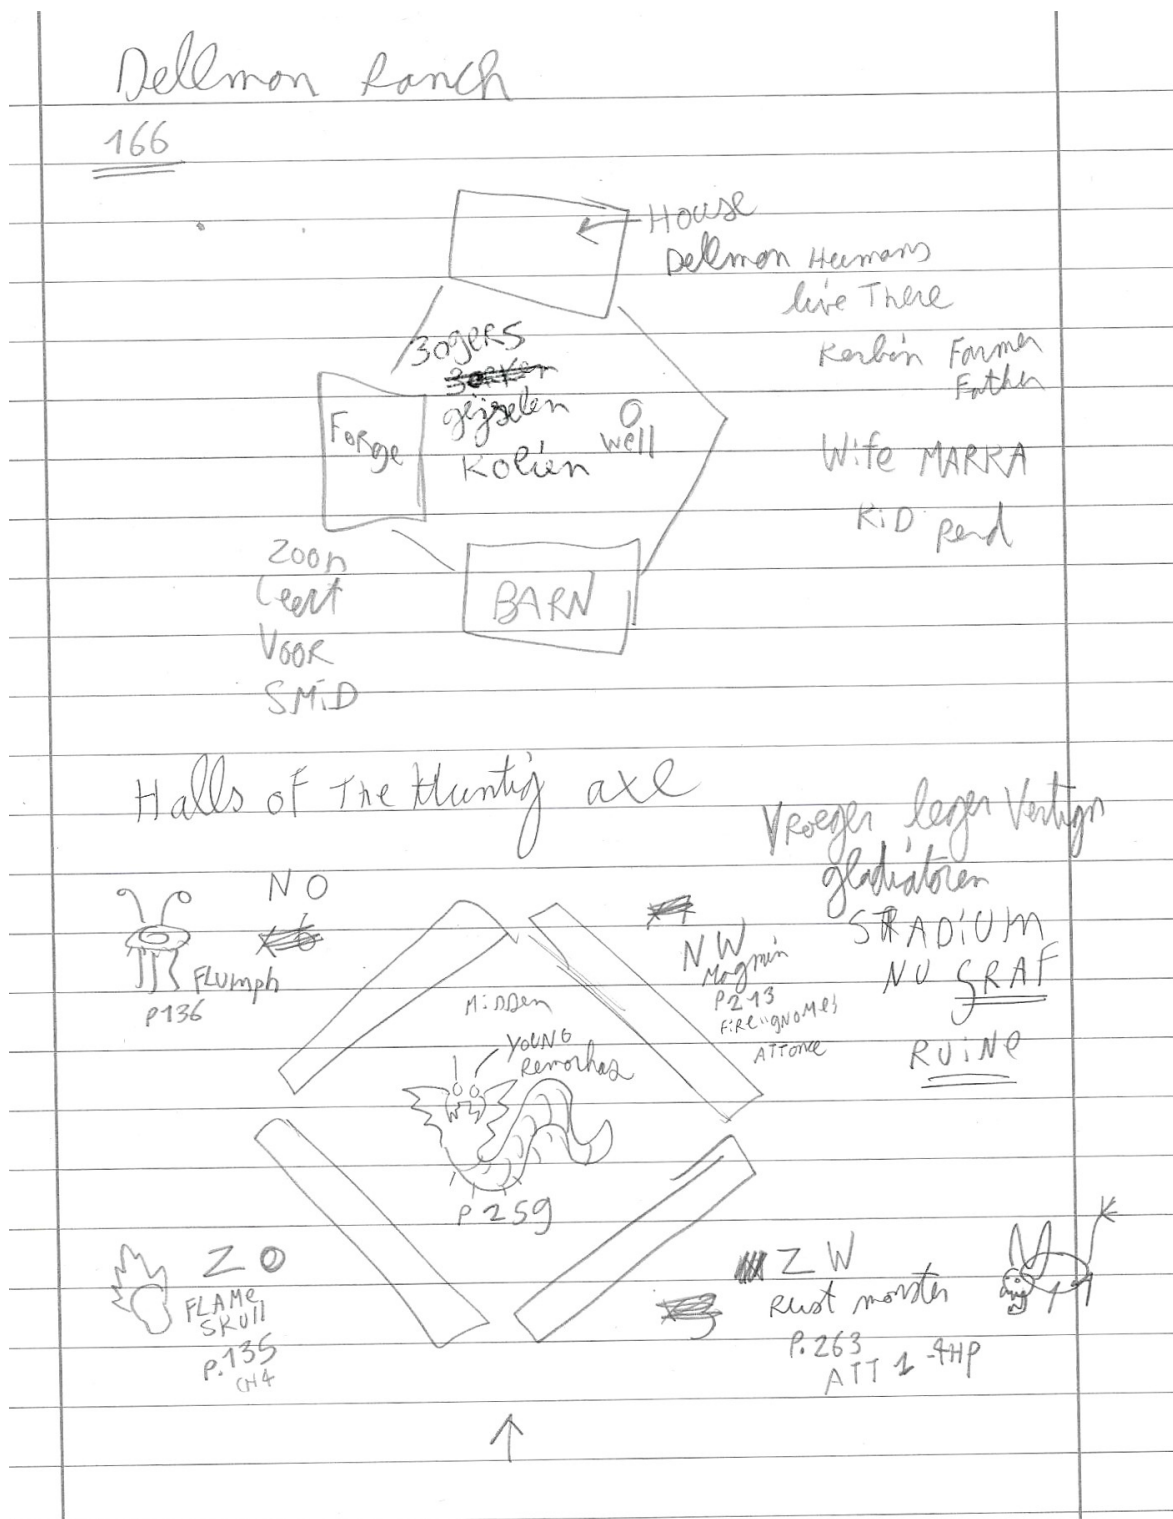 Dellmon Ranch
166
House
Dellmon Humans
live There
Kerbin Farmer
Father
Wife MARKA
KiD Pend
3 ogers
gijselen
Kolien
well
Forge
BARN
Zoon
Leert
VOOR
SMiD
Halls of The Huntig axe
Vroeger leger Vertign
gladiatoren
STADiUM
NU GRAF
RUiNe
NO
FLumph
P136
NW
Magmin
P213
FiRe "gNOMes
ATT once
Midden
YOUNG
Remorhaz
P259
ZO
FLAMe
SKUll
P.135
CH4
ZW
Rust monster
P.263
ATT 1 -4HP